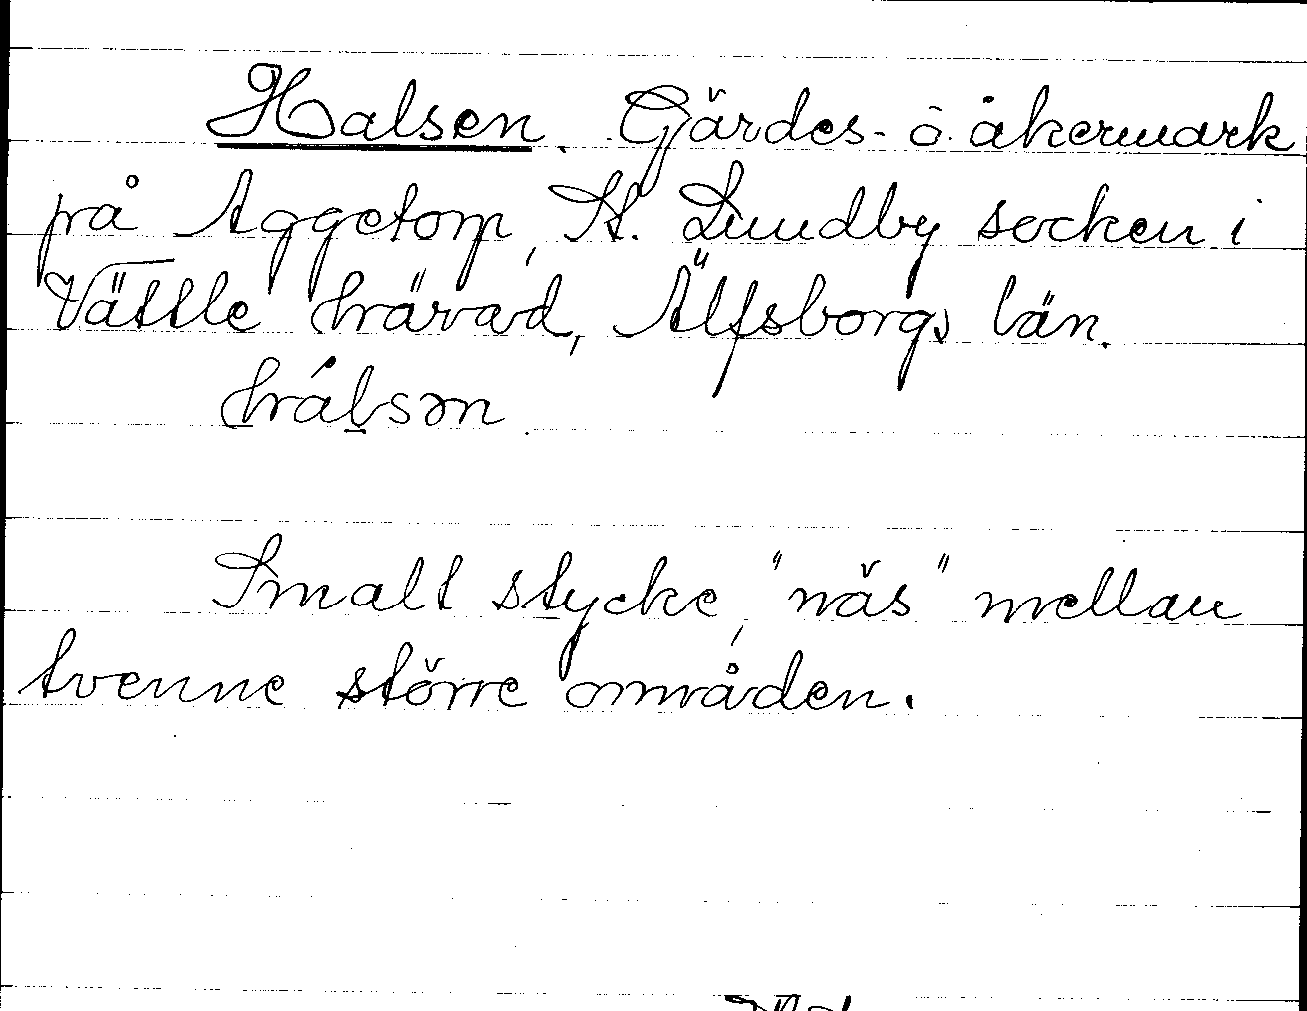 Halsen. Gärdes- o. åkermark
på Aggetorp, St. Lundby socken i
Vättle härad, Älfsborgs län.
hálsən
Smalt stycke, "näs" mellan
tvenne större områden.